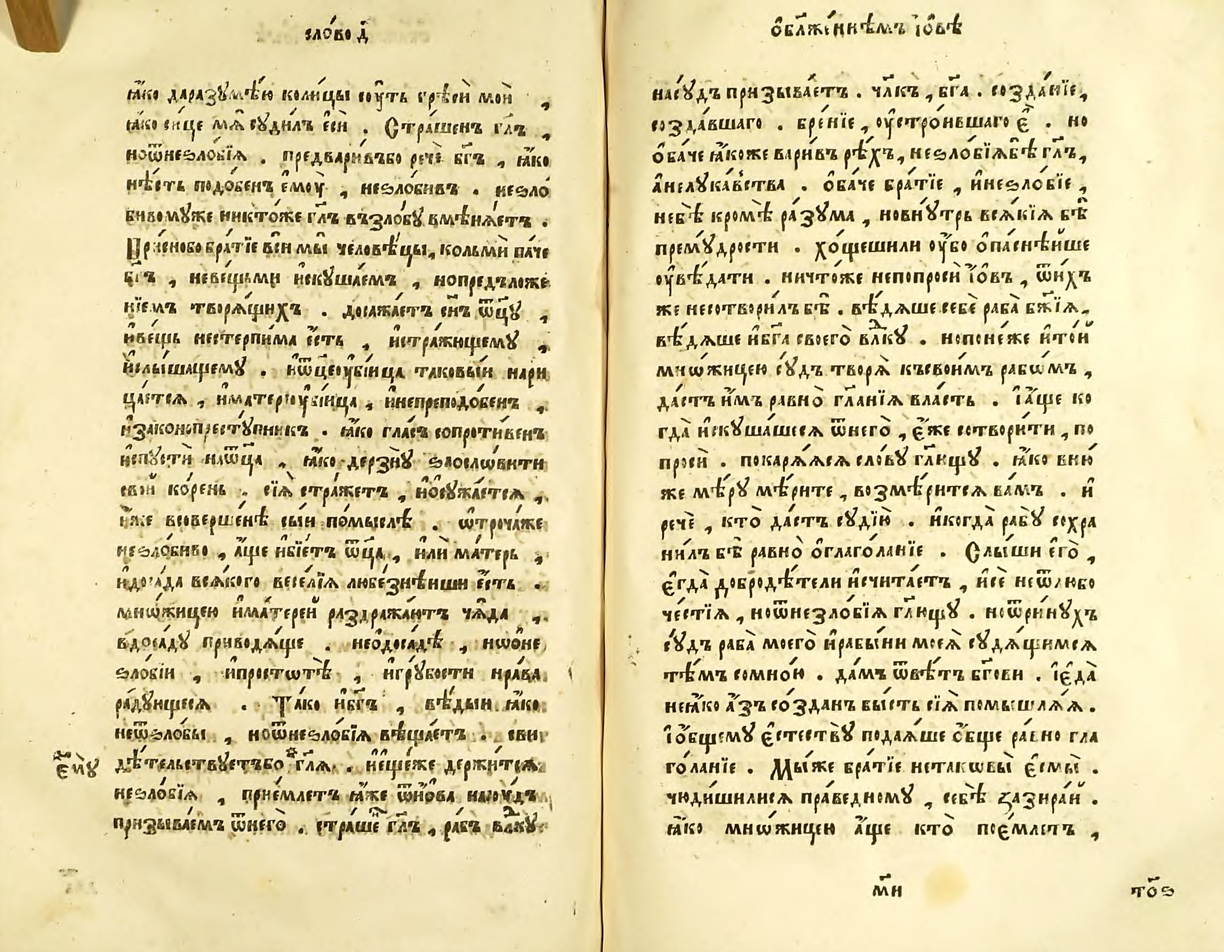 сло́во д҃
ꙗ҆́ко даразꙋмѣ́ю коли́цы сꙋ́ть грѣсѝ моѝ ,
ꙗ҆́ко си́це мѧ̀ сꙋди́лъ є҆сѝ . Стра́шенъ гл҃ъ ,
ноѿнеѕло́бїѧ . предвари́въбо речѐ бг҃ъ , ꙗ҆́ко
нѣ́сть подо́бенъ є҆мꙋ̀ , неѕло́бивъ . неѕло́
бивомꙋже никто́же гл҃ъ възло́бꙋ вмѣнѧ́етъ .
При́снобо бра́тїе всѝ мы̀ человѣ́цы, кольмѝ па́че
бг҃ъ , неве́щьми и҆скꙋша́ем , нопредъложе́
нїемъ творѧ́щихъ . досажа́етъ сн҃ъ ѿцꙋ̀ ,
и҆ве́щь нестерпи́ма є҆́сть , и҆стра́жꙋщемꙋ ,
и҆слы́шащемꙋ . и҆ѿцеꙋбі́йца таковы́и нари
ца́етсѧ , и҆матероꙋбі́йца , и҆непреподо́бенъ ,
и҆законопрестꙋ́пникъ . ꙗ҆́ко гла́съ сопроти́венъ
и҆спꙋстѝ наѿца̀ , ꙗ҆́ко дерзнꙋ̀ ѕлосло́вити
сво́й ко́рень . сїѧ̀ стра́жетъ , и҆ѡсꙋжа́етсѧ ,
и҆́же всоверше́нѣ сы́и по́мыслѣ . ѻ҆троча́же
неѕло́биво , а҆́ще и҆бїе́тъ ѿца̀ , и҆лѝ ма́терь ,
и҆доса́да всѧ́кого весе́лїѧ любе́знѣиши є҆́сть .
мно́жицею и҆ма́терей раздража́ютъ ча́да ,
вдоса́дꙋ приводѧ́ще . неѡ҆доса́дѣ , но́ѡне
ѕло́бїи , и҆простотѣ̀ , и҆грꙋ́бости нра́ва
ра́дꙋющесѧ . Та́ко и҆бг҃ъ , вѣ́дыи ꙗ҆́ко
неѿѕло́бы , ноѿнеѕло́бїѧ вѣща́етъ . сви
дѣ́тельствꙋетъбо гл҃ѧ . и҆є҆ще́же держи́тсѧ
є҆мꙋ̀
неѕло́бїѧ , прїе́млетъ ꙗ҆́же ѿі҆́ова насꙋ́дъ
призыва́емъ ѿнего̀ . стра́шенъ гл҃ъ , ра́бъ влⷣкꙋ
ѻ҆бл҃же́ннѣмъ і҆́овѣ
насꙋ́дъ призыва́етъ . чл҃къ , бг҃а . созда́нїе,
созда́вшаго . бре́нїе , ᲂу҆стро́ившаго є҆̀ . но
ѻ҆ба́че ꙗ҆́коже вари́въ рѣ́хъ, неѕло́бїѧбѣ̀ гл҃ъ,
а҆нелꙋка́вства . ѻ҆ба́че бра́тїе , и҆неѕло́бїе ,
небѣ̀ кромѣ̀ ра́зꙋма , новнꙋ́трь всѧ́кїѧ бѣ̀
премꙋ́дрости . хо́щешили ᲂу҆̀бо ѻ҆па́снѣйше
ᲂу҆вѣ́дати . ничто́же непопросѝ і҆́овъ , ѿни́хъ
же несотвори́лъ бѣ̀ . вѣ́дѧше себѐ раба̀ бж҃їѧ,
вѣ́дѧше и҆бг҃а своего̀ влⷣкꙋ . нопоне́же и҆то́й
мно́жицею сꙋ́дъ творѧ̀ късвои́мъ рабѡ́мъ ,
да́стъ и҆̀мъ равно̀ гл҃а́нїѧ вла́сть . і҆а҆́ще ко
гда̀ и҆скꙋша́шесѧ ѿнего̀ , є҆́же сотвори́ти , по
просѝ . покарѧ́ѧсѧ сло́вꙋ гл҃ющꙋ . ꙗ҆́ко вню́
же мѣ́рꙋ мѣ́рите , возмѣ́ритсѧ ва́мъ . и҆
речѐ , кто̀ да́стъ сꙋдїю̀ . и҆когда̀ рабꙋ̀ сохра
ни́лъ бѣ̀ равно̀ ѻ҆глаго́ланїе . Слы́ши є҆го̀ ,
є҆гда̀ добродѣ́тели и҆счита́етъ , и҆сѐ неѿлюбо
че́стїѧ , ноѿнеѕло́бїѧ гл҃ющꙋ . неѿри́нꙋхъ
сꙋ́дъ раба̀ моего̀ и҆рабы́ни моеѧ̀ сꙋдѧ́щимсѧ
тѣ́мъ сомно́ю . да́мъ ѿвѣ́тъ бг҃ови . і҆є҆да̀
неꙗ҆́ко а҆́зъ со́зданъ бы́сть сїѧ̀ помышлѧ́ѧ .
і҆ѻ҆́бщемꙋ є҆стествꙋ̀ подаѧ́ше ѻ҆́бще ра́вно гла
го́ланїе . Мы́же бра́тїе нетаковы̀ є҆смы̀ .
чюди́шилисѧ пра́ведномꙋ , себѣ̀ зазира́й .
ꙗ҆́ко мно́жицею а҆́ще кто̀ пое́млетъ ,
мн҃и
то́ѕ